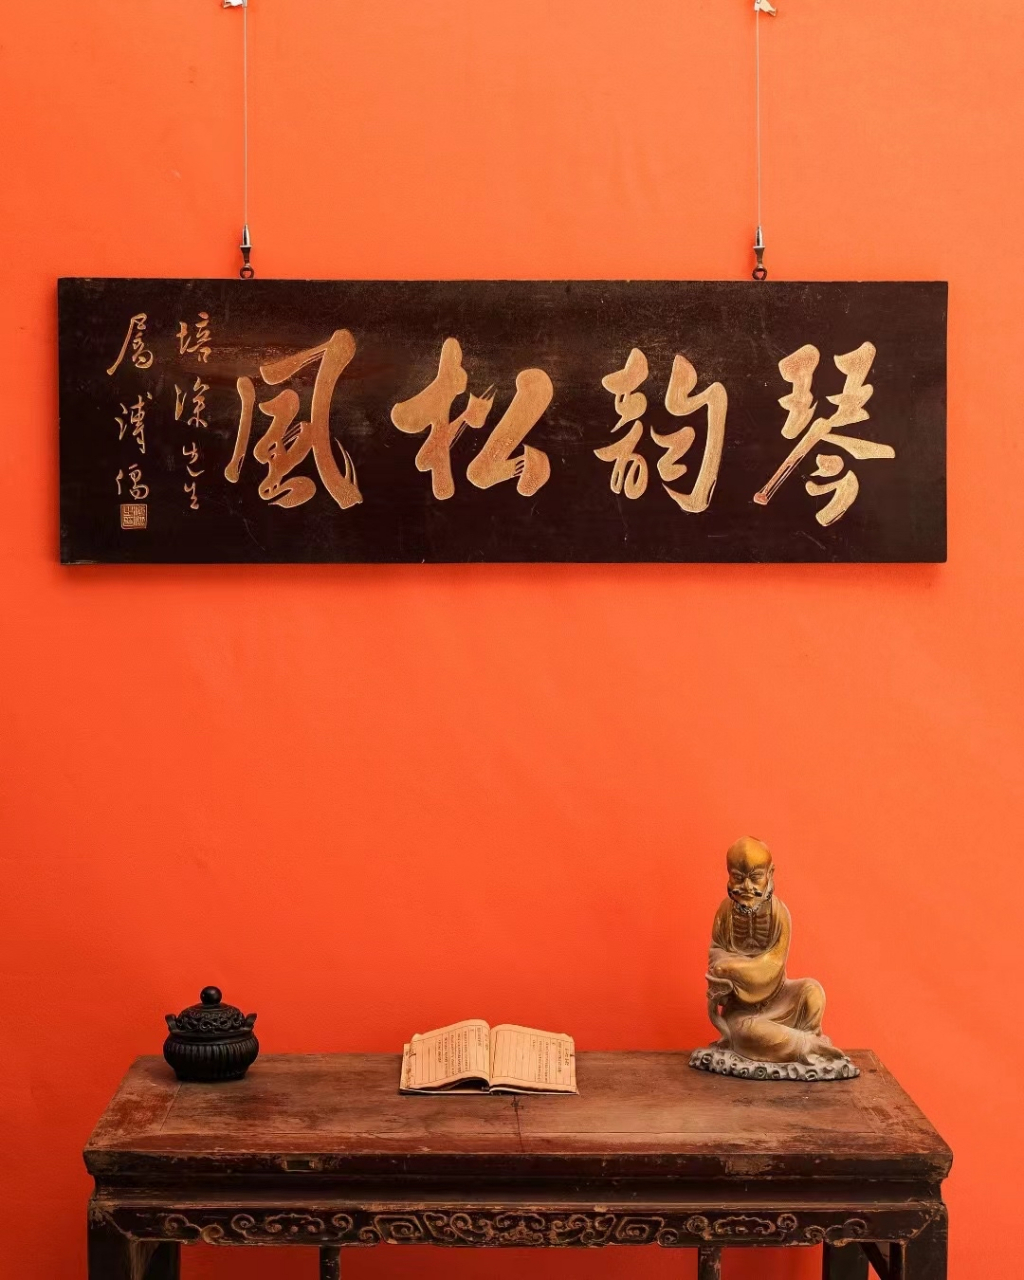 琴韵松風
培深先生
屬溥儒